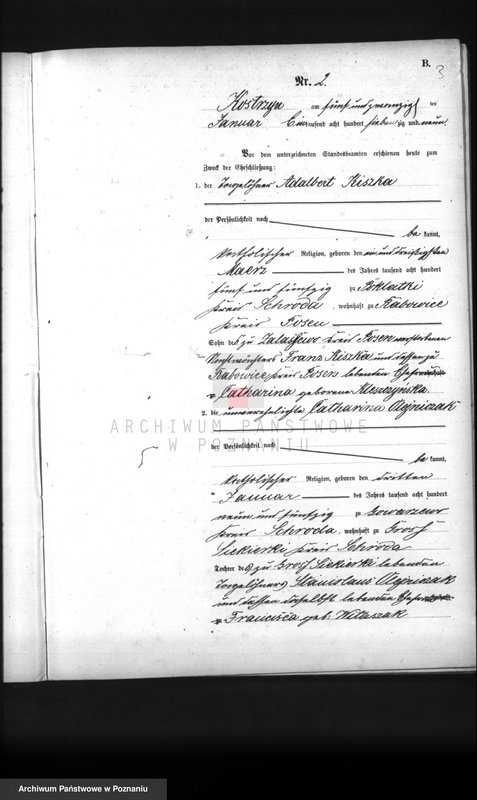 B.
3
Nr. 2.
Kostrzyn am fünf und zwanzig ten
Januar Eintausend acht hundert sieben zig und neun
Vor dem unterzeichneten Standesbeamten erschienen heute zum
Zweck der Eheschließung:
1. der Tagelöhner Adalbert Kiszka
der Persönlichkeit nach
be kannt,
katholischer Religion, geboren den ein und dreißigsten
Maerz des Jahres tausend acht hundert
fünf und fünfzig zu
Kreis Schroda, wohnhaft zu Rabowice
Kreis Posen
Sohn des zu Zalasewo Kreis Posen verstorbenen
Franz Kiszka und dessen zu
Rabowice, Kreis Posen lebenden
Catharina geborene Kleszczynska
2. die unverehelichte Catharina
ARCHIWUM PAŃSTWOWE
W POZNANIU
der Persönlichkeit nach
be kannt,
katholischer Religion, geboren den dritten
Januar des Jahres tausend acht hundert
neun und fünfzig zu Gowarzewo
Kreis Schroda, wohnhaft zu Groß
Siekierki Kreis Schroda
Tochter des zu Groß Siekierki lebenden
Tagelöhners Stanislaus
und dessen daselbst lebenden
Francisca geb. Witaszak
Archiwum Państwowe w Poznaniu